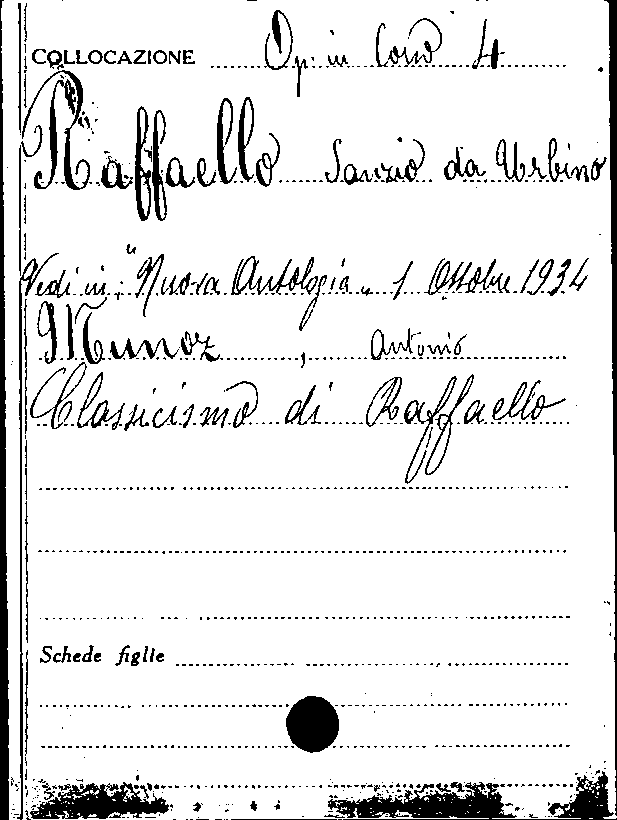 COLLOCAZIONE Op. in Corso 4
Raffaello Sanzio da Urbino
Vedi in: "Nuova Antologia„ 1 Ottobre 1934
Munoz, Antonio
Classicismo di Raffaello
Schede figlie